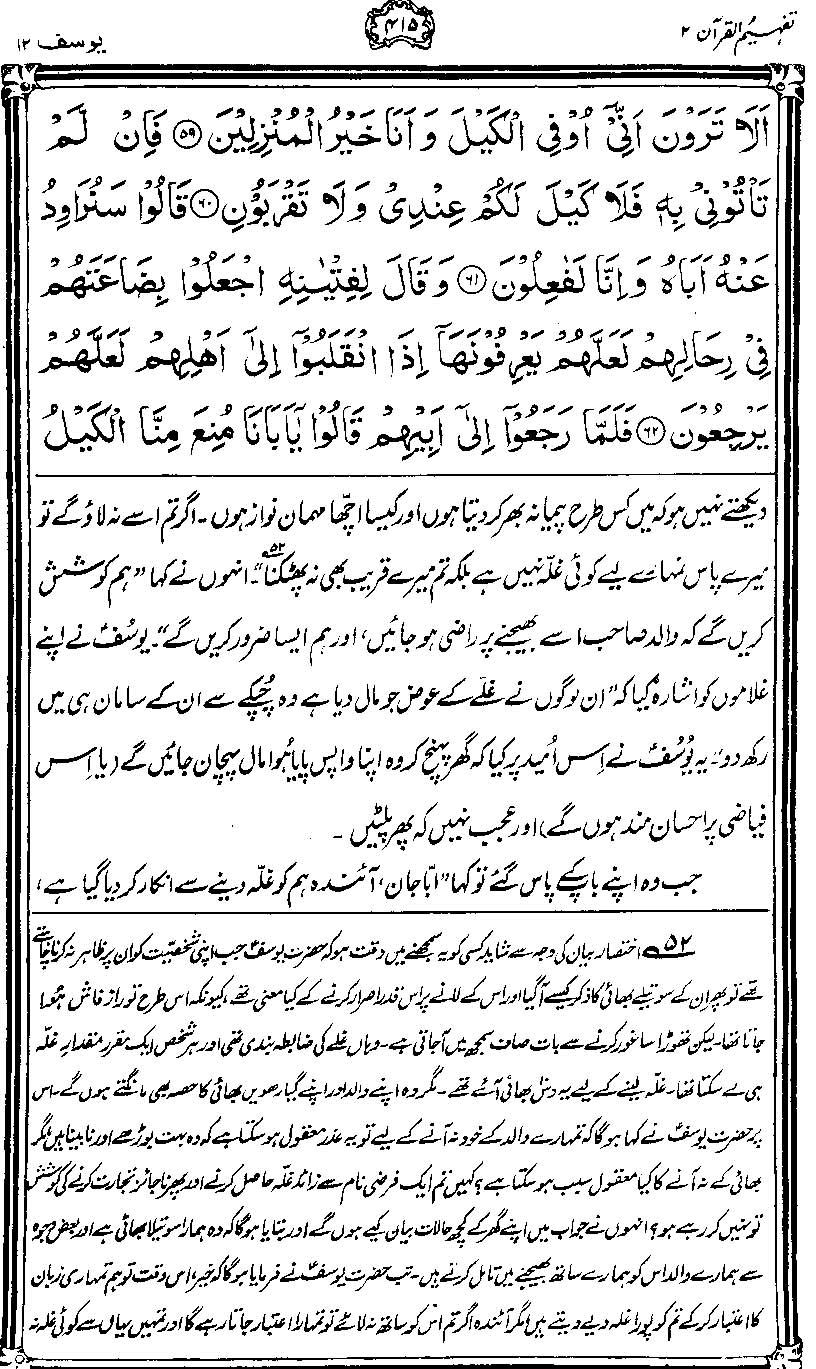 تفہیم القرآن ۲
۴۱۵
یوسف ۱۲
اَلَا تَرَوْنَ اَنِّيْٓ اُوْفِي الْكَيْلَ وَاَنَا خَيْرُ الْمُنْزِلِيْنَ ۵۹ فَاِنْ لَّمْ
تَاْتُوْنِيْ بِهٖ فَلَا كَيْلَ لَكُمْ عِنْدِيْ وَلَا تَقْرَبُوْنِ ۶۰ قَالُوْا سَنُرَاوِدُ
عَنْهُ اَبَاهُ وَاِنَّا لَفٰعِلُوْنَ ۶۱ وَقَالَ لِفِتْيٰنِهِ اجْعَلُوْا بِضَاعَتَهُمْ
فِيْ رِحَالِهِمْ لَعَلَّهُمْ يَعْرِفُوْنَهَآ اِذَا انْقَلَبُوْٓا اِلٰٓى اَهْلِهِمْ لَعَلَّهُمْ
يَرْجِعُوْنَ ۶۲ فَلَمَّا رَجَعُوْٓا اِلٰٓى اَبِيْهِمْ قَالُوْا يٰٓاَبَانَا مُنِعَ مِنَّا الْكَيْلُ
دیکھتے نہیں ہو کہ میں کس طرح پیمانہ بھر کر دیتا ہوں اور کیسا اچھّا مہمان نواز ہوں۔ اگر تم اسے نہ لاؤ گے تو
میرے پاس تمہارے لیے کوئی غلّہ نہیں ہے بلکہ تم میرے قریب بھی نہ پھٹکنا۵۲“۔ انہوں نے کہا ”ہم کوشش
کریں گے کہ والد صاحب اسے بھیجنے پر راضی ہو جائیں، اور ہم ایسا ضرور کریں گے“۔ یوسفؑ نے اپنے
غلاموں کو اشارہ کیا کہ ”ان لوگوں نے غلّے کے عوض جو مال دیا ہے وہ چُپکے سے ان کے سامان ہی میں
رکھ دو“۔ یہ یُوسُفؑ نے اِس اُمید پر کیا کہ گھر پہنچ کر وہ اپنا واپس پایا ہُوا مال پہچان جائیں گے (یا اِس
فیاضی پر احسان مند ہوں گے) اور عجب نہیں کہ پھر پلٹیں۔
جب وہ اپنے باپ کے پاس گئے تو کہا ”ابّا جان، آئندہ ہم کو غلّہ دینے سے انکار کر دیا گیا ہے،
۵۲ اختصار بیان کی وجہ سے شاید کسی کو یہ سمجھنے میں دقت ہو کہ حضرت یوسفؑ جب اپنی شخصیّت کو ان پر ظاہر نہ کرنا چاہتے
تھے تو پھر ان کے سوتیلے بھائی کا ذکر کیسے آگیا اور اس کے لانے پر اس قدر اصرار کرنے کے کیا معنی تھے، کیونکہ اس طرح تو راز فاش ہُوا
جاتا تھا۔ لیکن تھوڑا سا غور کرنے سے بات صاف سمجھ میں آجاتی ہے۔ وہاں غلے کی ضابطہ بندی تھی اور ہر شخص ایک مقرر مقدارِ غلہ
ہی لے سکتا تھا۔ غلہ لینے کے لیے یہ دس بھائی آئے تھے۔ مگر وہ اپنے والد اور اپنے گیارھویں بھائی کا حصہ بھی مانگتے ہوں گے۔ اس
پر حضرت یوسفؑ نے کہا ہو گا کہ تمہارے والد کے خود نہ آنے کے لیے تو یہ عذر معقول ہو سکتا ہے کہ وہ بہت بوڑھے اور نابینا ہیں، مگر
بھائی کے نہ آنے کا کیا معقول سبب ہو سکتا ہے؟ کہیں تم ایک فرضی نام سے زائد غلہ حاصل کرنے اور پھر ناجائز تجارت کرنے کی کوشش
تو نہیں کر رہے ہو؟ انہوں نے جواب میں اپنے گھر کے کچھ حالات بیان کیے ہوں گے اور بتایا ہوگا کہ وہ ہمارا سوتیلا بھائی ہے اور بعض وجوہ
سے ہمارے والد اس کو ہمارے ساتھ بھیجنے میں تامل کرتے ہیں۔ تب حضرت یوسفؑ نے فرمایا ہوگا کہ خیر، اس وقت تو ہم تمہاری زبان
کا اعتبار کر کے تم کو پورا غلہ دیے دیتے ہیں مگر آئندہ اگر تم اس کو ساتھ نہ لائے تو تمہارا اعتبار جاتا رہے گا اور تمہیں یہاں سے کوئی غلہ نہ